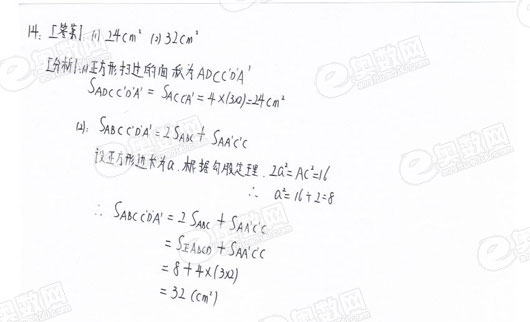 14. [答案] (1) 24cm² (2) 32cm²
[分析] (1) 正方形扫过的面积为ADCC'D'A'
S_ADCC'D'A' = S_ACC'A' = 4×(3×2)=24cm²
(2): S_ABCC'D'A' = 2S_ABC + S_AA'C'C
设正方形边长为a. 根据勾股定理. 2a²=AC²=16
∴ a²=16÷2=8
∴ S_ABCC'D'A' = 2S_ABC + S_AA'C'C
= S_正ABCD + S_AA'C'C
= 8+4×(3×2)
= 32 (cm²)
e奥数网